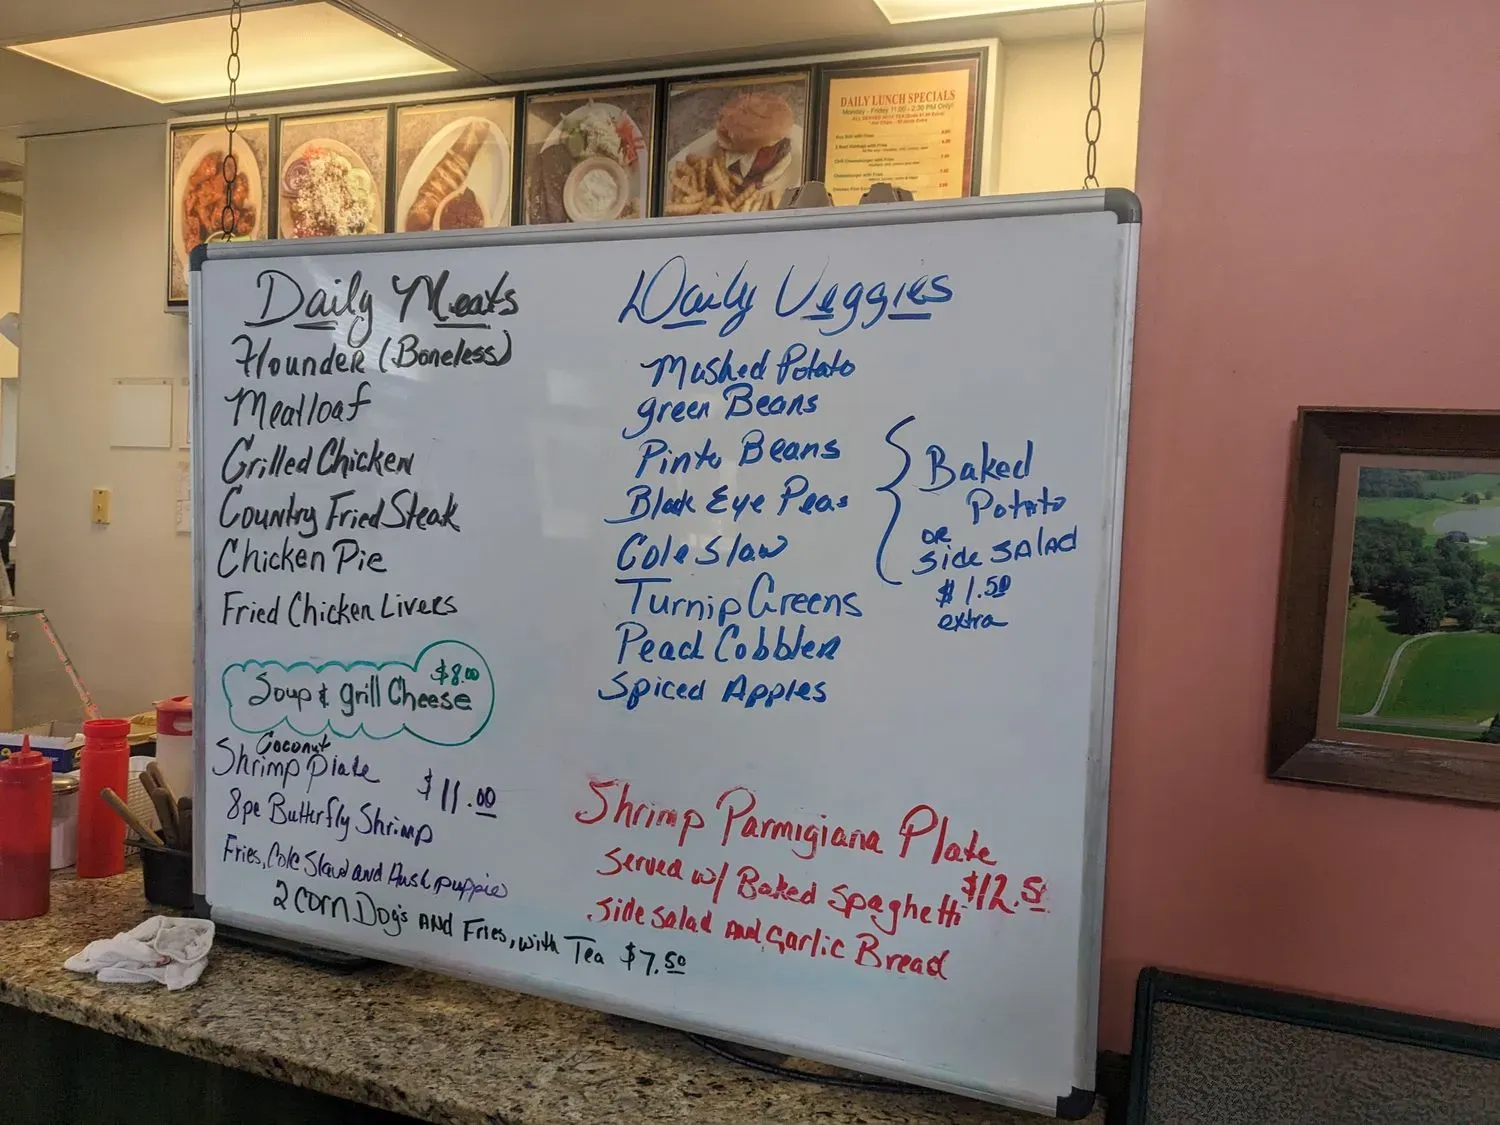 DAILY LUNCH SPECIALS
Monday - Friday 11:00 - 2:30 PM Only!
Daily Meats
Flounder (Boneless)
Meatloaf
Grilled Chicken
Country Fried Steak
Chicken Pie
Fried Chicken Livers
$8.00
Soup & grill Cheese
Coconut
Shrimp Plate $11.00
8pc Butterfly Shrimp
Fries, Cole Slaw and Hush puppie
2 Corn Dog's AND Fries, with Tea $7.50
Daily Veggies
Mashed Potato
green Beans
Pinto Beans
Black Eye Peas
Cole Slaw
Turnip Greens
Peach Cobbler
Spiced Apples
Baked
Potato
OR
Side SALAD
$1.50
extra
Shrimp Parmigiana Plate
Served w/ Baked Spaghetti $12.50
Side Salad and Garlic Bread